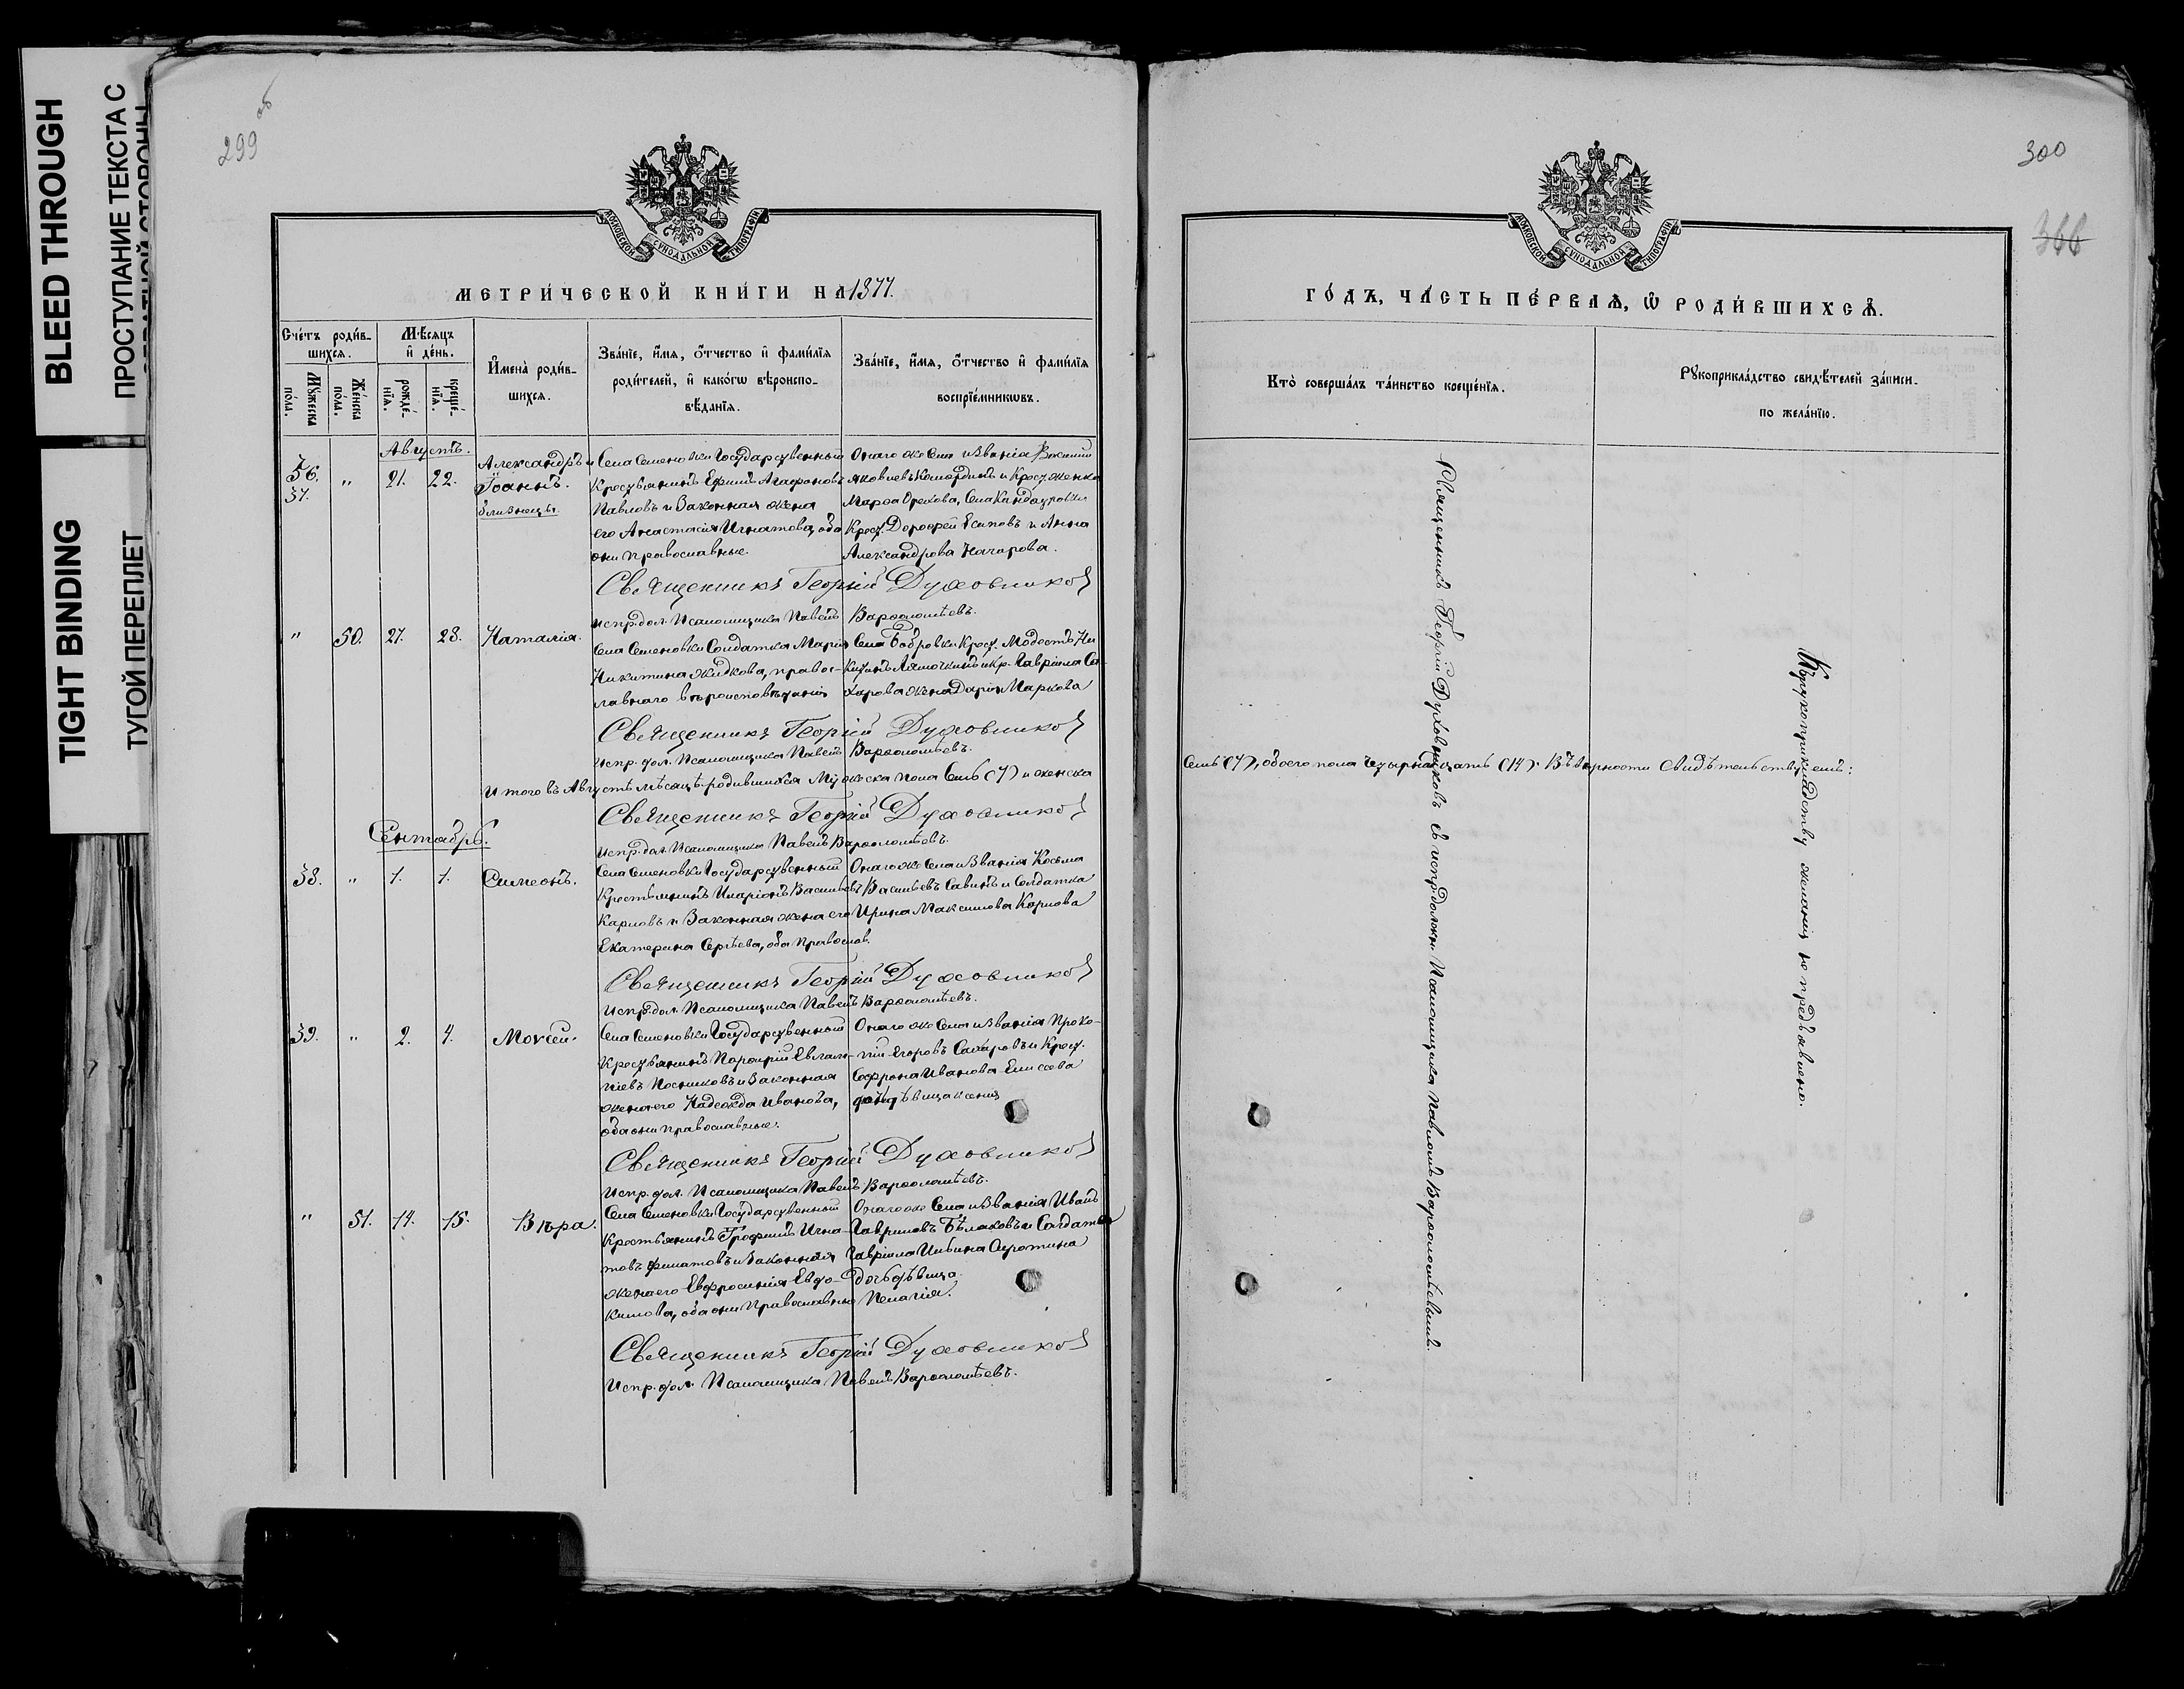 BLEED THROUGH
ПРОСТУПАНИЕ ТЕКСТА С
ОБРАТНОЙ СТОРОНЫ
TIGHT BINDING
ТУГОЙ ПЕРЕПЛЕТ
299 об
МОСКОВСКОЙ СУНОДАЛЬНОЙ ТИПОГРАФІИ
МЕТРИ́ЧЕСКОЙ КНИ́ГИ НА 1877.
Сче́тъ роди́в-
шихся.
Мѣ́сяцъ
и҆ де́нь.
Мꙋ́жеска
по́ла.
Же́нска
по́ла.
рожде́-
нїя.
креще́-
нїя.
И҆мена̀ роди́в-
шихся.
Зва́нїе, и҆́мя, ѻ҆́тчество и҆ фами́лїя
роди́телей, и҆ како́гѡ вѣроиспо-
вѣ́данїя.
Зва́нїе, и҆́мя, ѻ҆́тчество и҆ фами́лїя
воспрїе́мникѡвъ.
Августъ.
36.
37.
"
21.
22.
Александръ и
Іоаннъ.
близнецы.
Села Семеновки Государственный
Крестьянинъ Ефимъ Агафоновъ
Павловъ и Законная жена
его Анастасія Игнатова, оба
они православные.
Онаго же Села и Званія Василій
Яковлевъ Комардинъ и Крест. женка
Марѳа Орехова, Села Кандауровки
Крест. Дороѳей Есиповъ и Анна
Александрова Начарова.
Священникъ Георгій Духовников
Испр. дол. Псаломщика Павелъ Варѳоломѣевъ.
"
50.
27.
28.
Наталія.
Села Семеновки Солдатка Марія
Никитина Жидкова, правос-
лавнаго вѣроисповѣданія
Села Бобровки Крест. Модестъ Ни
китинъ Лямочкинъ и кр. Гавріила Са-
харова жена Дарія Маркова
Священникъ Георгій Духовников
Испр. дол. Псаломщика Павелъ Варѳоломѣевъ.
Итого въ Августѣ мѣсяцѣ родившихся Мужеска пола Семь (7) и женска
Священникъ Георгій Духовников
Испр. дол. Псаломщика Павелъ Варѳоломѣевъ.
Сентябрь.
38.
"
1.
1.
Симеонъ.
Села Семеновки Государственный
Крестьянинъ Иларіонъ Василь
Карповъ и Законная жена его
Екатерина Сергѣева, оба Правослов.
Онаго же Села и Званія Косьма
Васильевъ Савинъ и Солдатка
Ирина Максимова Карпова
Священникъ Георгій Духовников
Испр. дол. Псаломщика Павелъ Варѳоломѣевъ.
39.
"
2.
4.
Моѵсей.
Села Семеновки Государственный
Крестьянинъ Порфирій Евлам-
піевъ Посниковъ и Законная
жена его Надежда Иванова,
оба они Православные.
Онаго же Села и Званія Проко-
пій Егоровъ Сахаровъ и Крест.
Софрона Иванова Елисеева
дочь дѣвица Ксенія
Священникъ Георгій Духовников
Испр. дол. Псаломщика Павелъ Варѳоломѣевъ.
"
51.
14.
15.
Вѣра.
Села Семеновки Государственный
Крестьянинъ Трофимъ Игна-
товъ Филатовъ и Законная
жена его Евфросинія Евдо-
кимова, оба они Православные
Онаго же Села и Званія Иванъ
Гавриловъ Бѣлаковъ и Солдата
Гавріила Ильина Сиротина
дочь дѣвица
Пелагія.
Священникъ Георгій Духовников
Испр. дол. Псаломщика Павелъ Варѳоломѣевъ.
300
366
МОСКОВСКОЙ СУНОДАЛЬНОЙ ТИПОГРАФІИ
ГО́ДЪ, ЧА́СТЬ ПЕ́РВАЯ, Ѡ҆ РОДИ́ВШИХСЯ.
Кто̀ соверша́лъ та́инство креще́нїя.
Рꙋкоприкла́дство свидѣ́телей за́писи.
по жела́нїю.
Семь (7), обоего пола Четырнадцать (14). Въ верности Свидѣтельствуемъ:
Священникъ Георгій Духовниковъ съ испр. должн. Псаломщика Павломъ Варѳоломѣевымъ.
Къ рукоприкладству желанія не предъявлено.